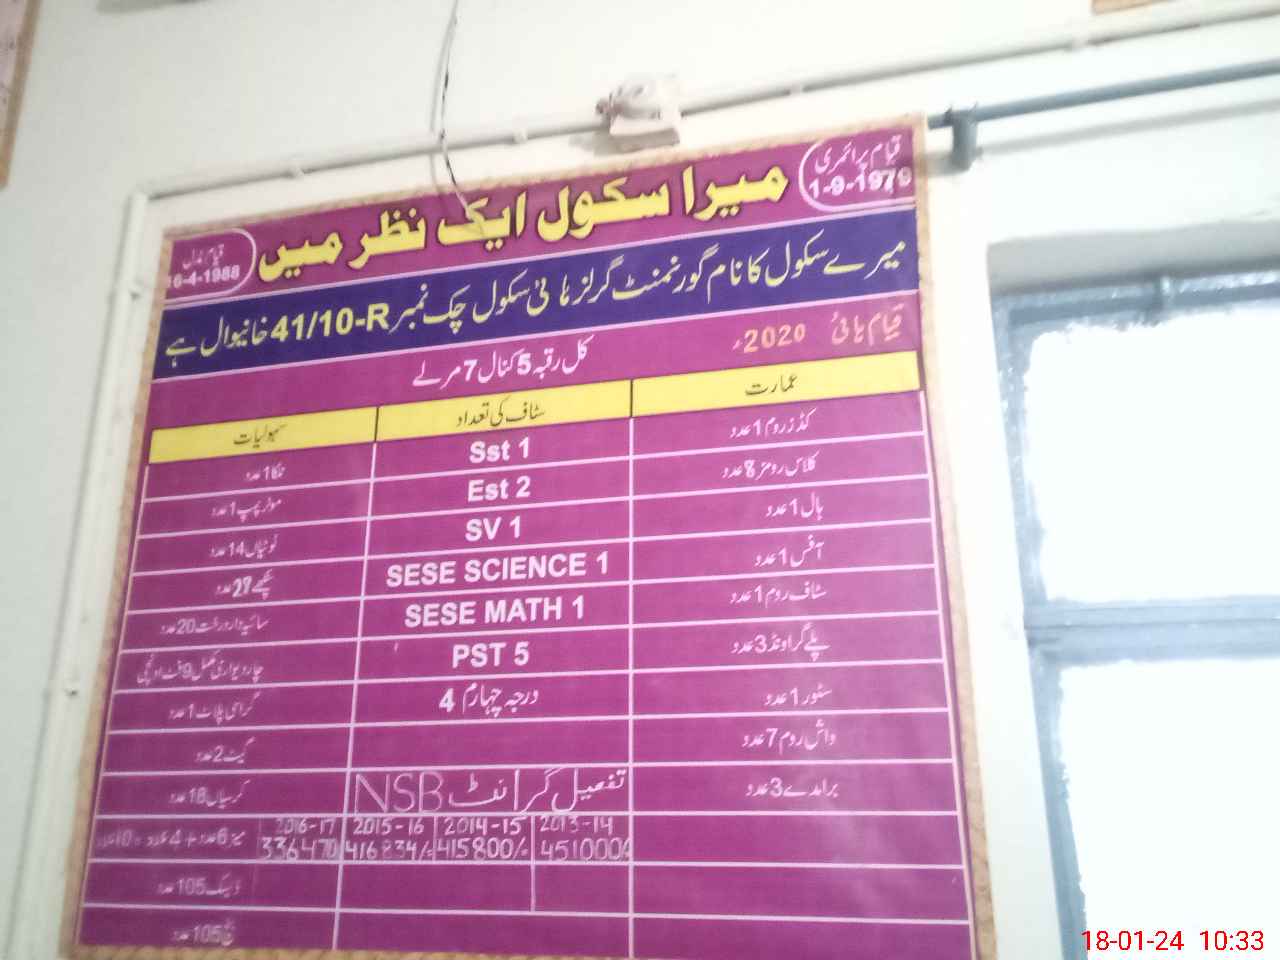 قیام پرائمری
1-9-1979
میرا سکول ایک نظر میں
قیام مڈل
16-4-1988
میرے سکول کا نام گورنمنٹ گرلز ہائی سکول چک نمبر 41/10-R خانیوال ہے
قیام ہائی 2020ء
کل رقبہ 5 کنال 7 مرلے
عمارت
کڈز روم 1 عدد
کلاس رومز 8 عدد
ہال 1 عدد
آفس 1 عدد
سٹاف روم 1 عدد
پلے گراونڈ 3 عدد
سٹور 1 عدد
واش روم 7 عدد
برامدے 3 عدد
سٹاف کی تعداد
Sst 1
Est 2
SV 1
SESE SCIENCE 1
SESE MATH 1
PST 5
درجہ چہارم 4
تفصیل گرانٹ NSB
2013-14 2014-15 2015-16 2016-17
451000/- 415800/- 416834/- 336470
سہولیات
نلکا 1 عدد
موٹر پمپ 1 عدد
ٹوٹیاں 14 عدد
پنکھے 27 عدد
سائیہ دار درخت 20 عدد
چار دیواری مکمل 9 فٹ اونچی
گراسی پلاٹ 1 عدد
گیٹ 2 عدد
کرسیاں 18 عدد
میز 6 عدد + 4 عدد = 10 عدد
ڈیسک 105 عدد
بنچ 105 عدد
18-01-24 10:33